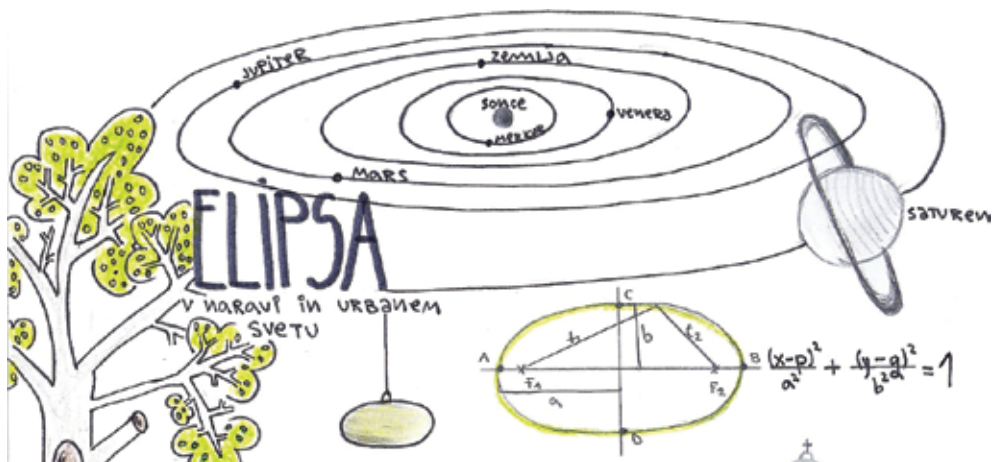 JUPITER
zemlja
sonce
Merkur
venera
MARS
saturen
ELIPSA
v naravi in urbanem
svetu
C
A
f₁
b
f₂
B
F₁
F₂
a
D
(x-p)²/a² + (y-q)²/b² = 1